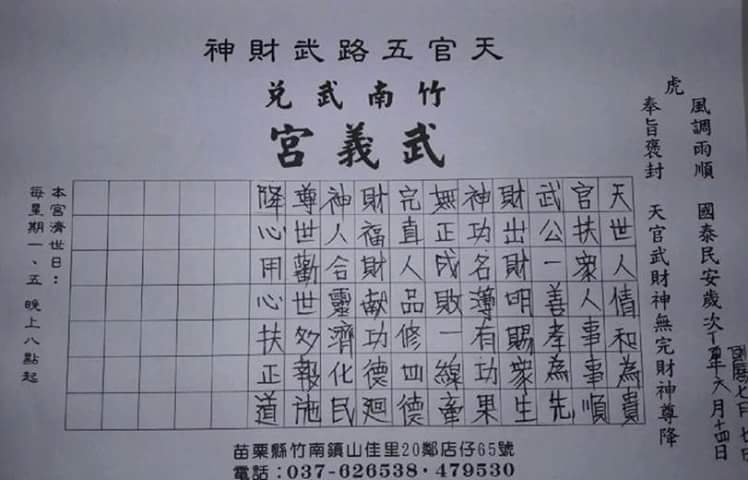 天官五路武財神
竹南武兌
武義宮
風調雨順 國泰民安歲次丁酉年六月十四日
國曆七月七日
虎
奉旨褒封 天官武財神無完財神尊降
天世人情和為貴
官扶眾人事事順
武公一善孝為先
財出財明賜眾生
神功名薄有功果
無正成敗一線牽
完直人品修四德
財福財献功德廻
神人合靈濟化民
尊世勸世多報施
降心用心扶正道
本宮濟世日：
每星期一、五 晚上八點起
苗栗縣竹南鎮山佳里20鄰店仔65號
電話：037-626538·479530